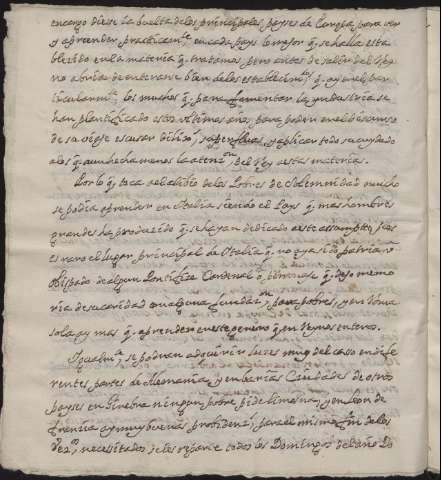 encargo diese la buelta de los principales payses de Europa, para ver
y aprender practicamte en cada pays lo mejor q. se halla esta
blecido en la materia q. tratamos, pero antes de salir del Rey
no abria de enterarse bien de los establecimtos q. ay en el par
ticularmte los muchos q. para fomentar la yndustria se
han plantificado estos ultimos años, para poder en el discurso
de su viaje escusar dilixs superfluas, y aplicar todo su cuydado
a los q. aun hecha menos la atenzon del Rey a estas materias.
Por lo q. toca al alibio de los Pobres de Solemnidad mucho
se podia aprender en Italia siendo el Pays q. mas hombres
grandes ha producido q. se hayan dedicado a este assumpto, pues
es raro el lugar principal de Italia q. no aya sido patria, o
Obispado de algun Pontifize Cardenal o personaje q. dejo memo
ria de su caridad en alguna fundazon para pobres, y en Roma
sola ay mas q. aprender en este genero q. en Reynos enteros.
Igualmte se podrian adquirir luzes muy del caso en dife
rentes partes de Alemania, y en barias Ciudades de otros
payses en Ginebra ningun pobre pide limosna, y en Leon de
Francia ay muy buenas probidenzs para el mismo fin de los
Vezos necesitados se les reparte todos los Domingos del año Do